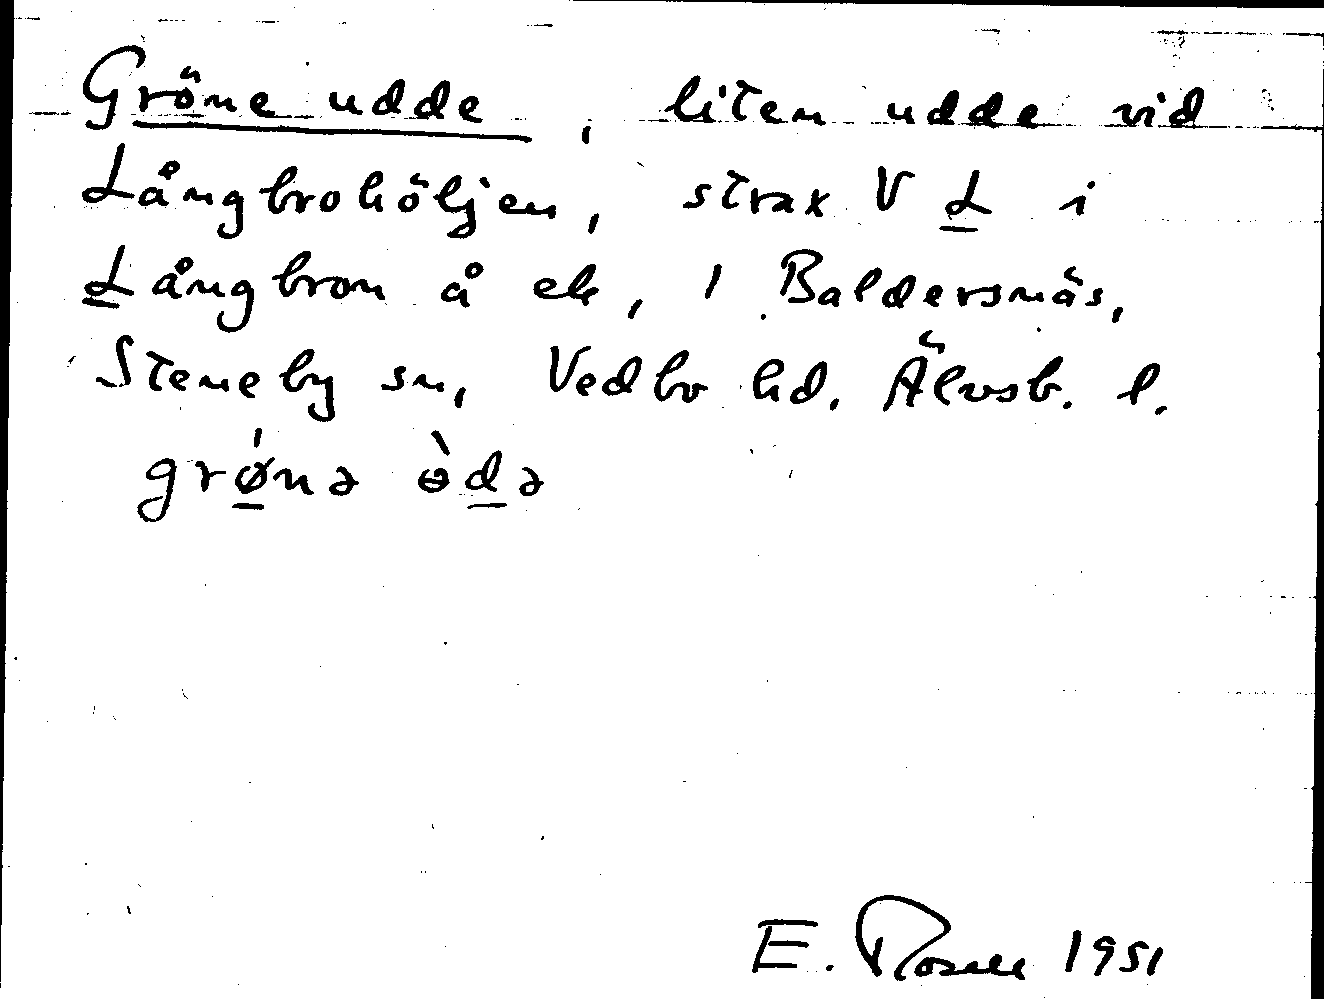 Gröne udde, liten udde vid
Långbrohöljen, strax V L i
Långbron å ek, 1 Baldersnäs,
Steneby sn, Vedbo hd. Älvsb. l.
grǿnə ɵ̀də
E. Rosell 1951